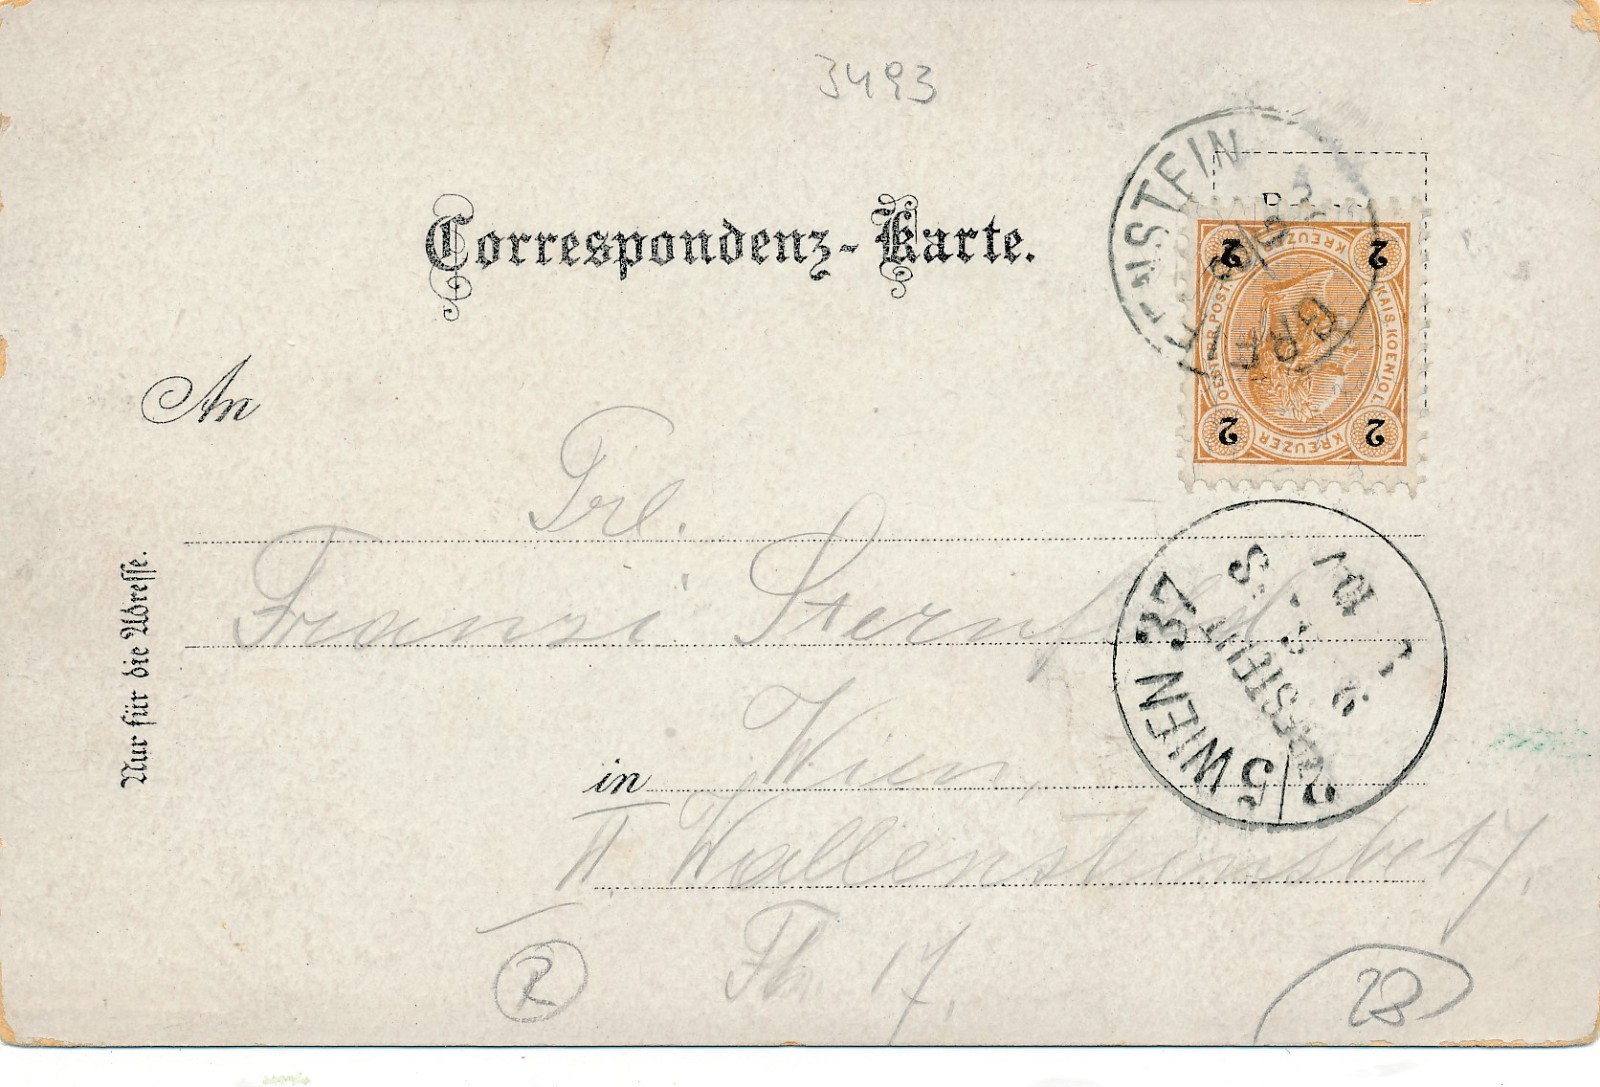 3493
Correspondenz-Karte.
GRAFENSTEIN
2 2
KAIS. KOENIGL. OESTERR. POST.
KREUZER KREUZER
2 2
An
Frl.
Franzi Sternfeld
WIEN 2/5 37
BESTELLT
in Wien,
II Wallensteinstr 17.
Th. 17.
Nur für die Adresse.
R
23